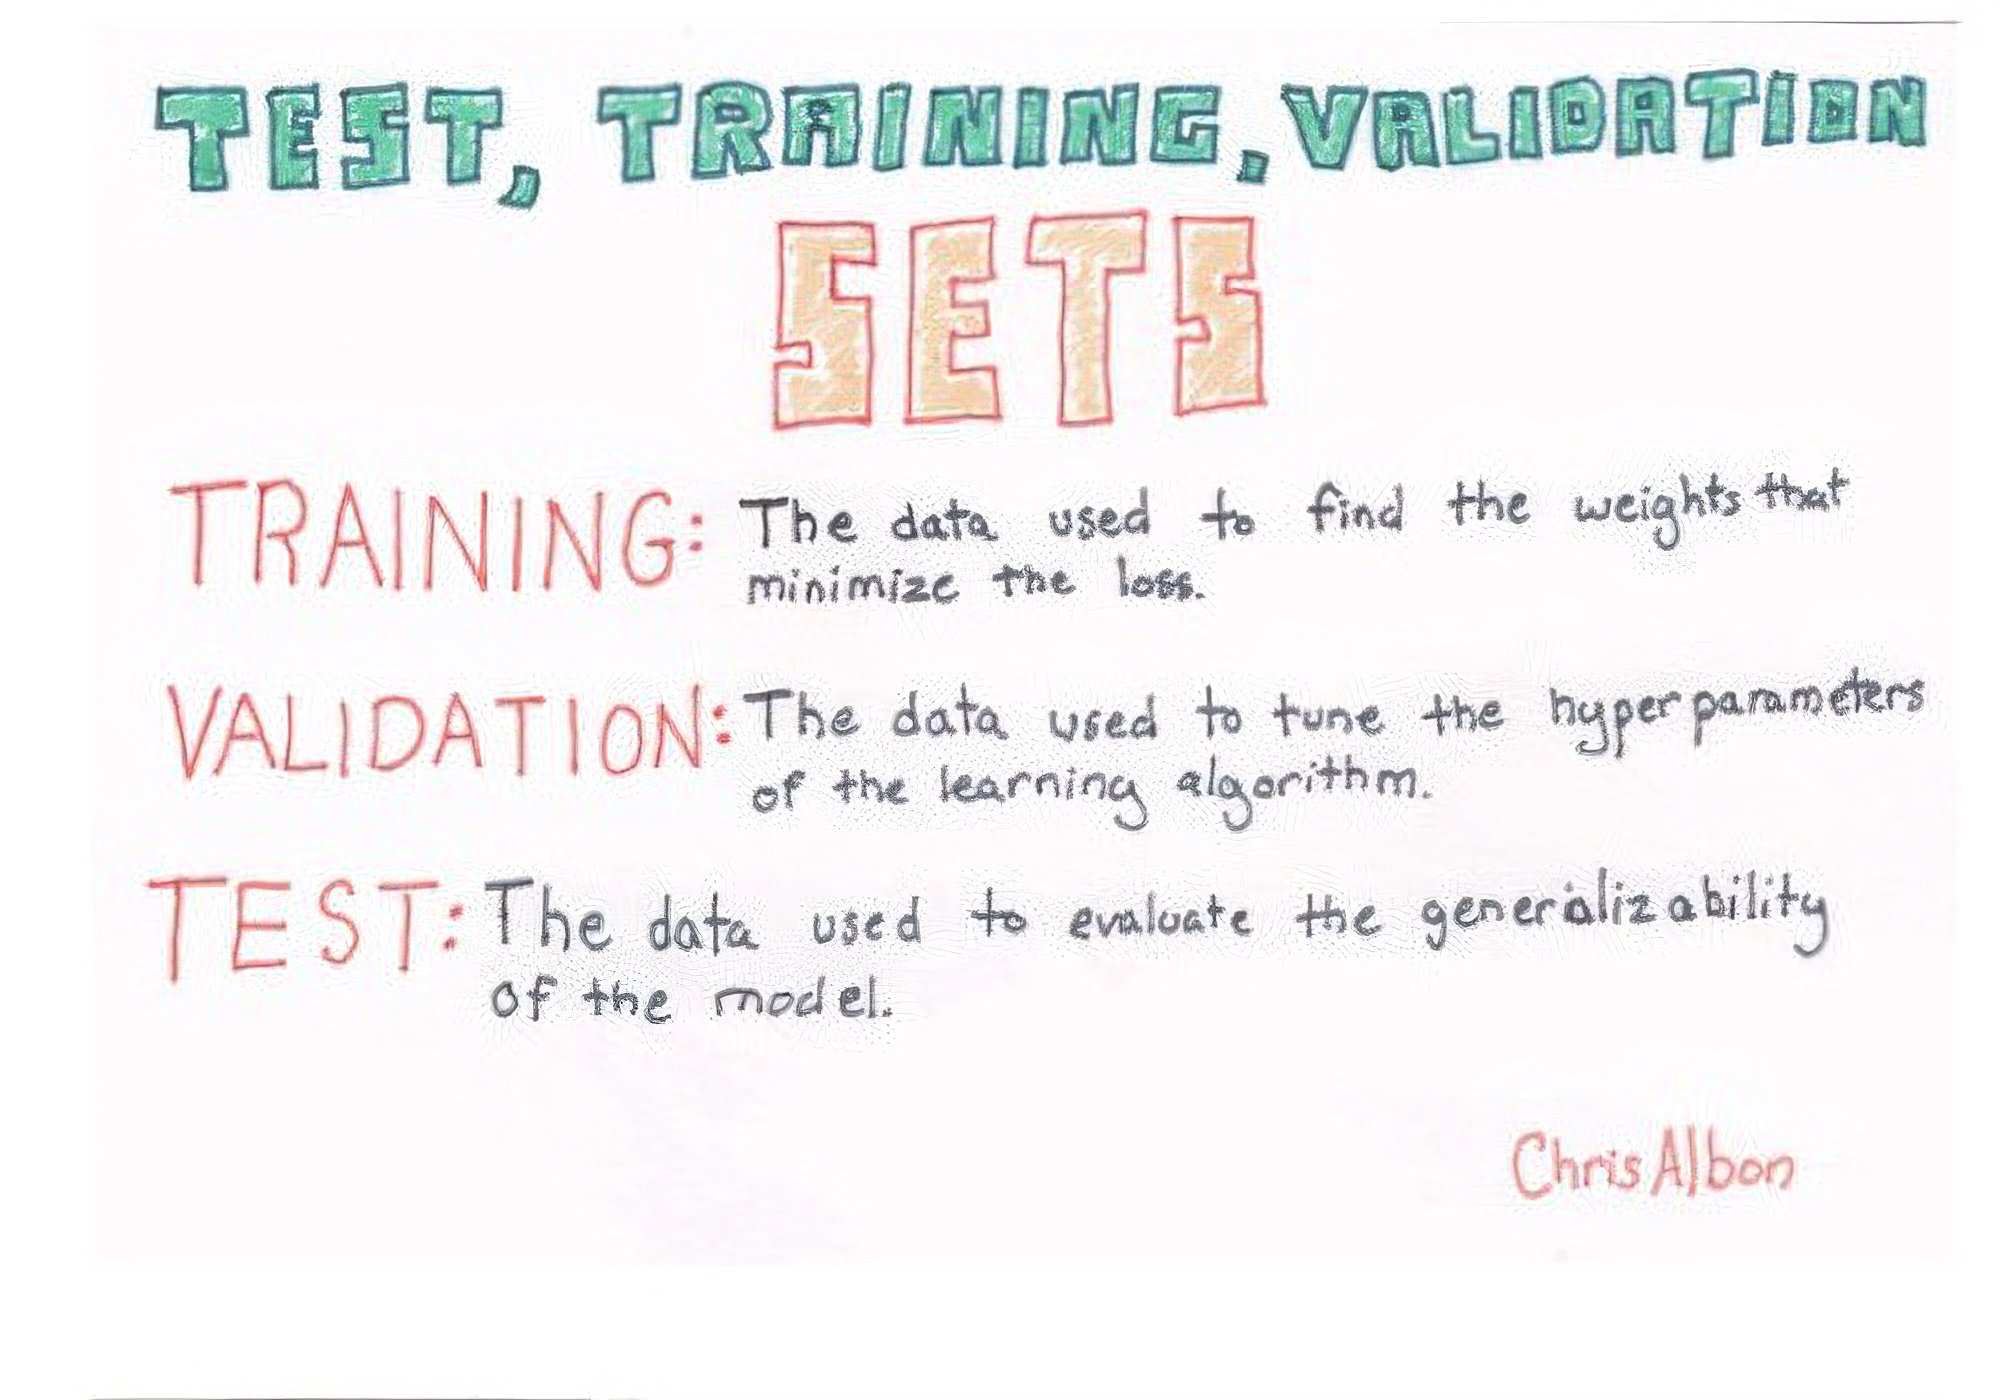 TEST, TRAINING, VALIDATION
SETS
TRAINING: The data used to find the weights that
minimize the loss.
VALIDATION: The data used to tune the hyperparameters
of the learning algorithm.
TEST: The data used to evaluate the generalizability
of the model.
Chris Albon